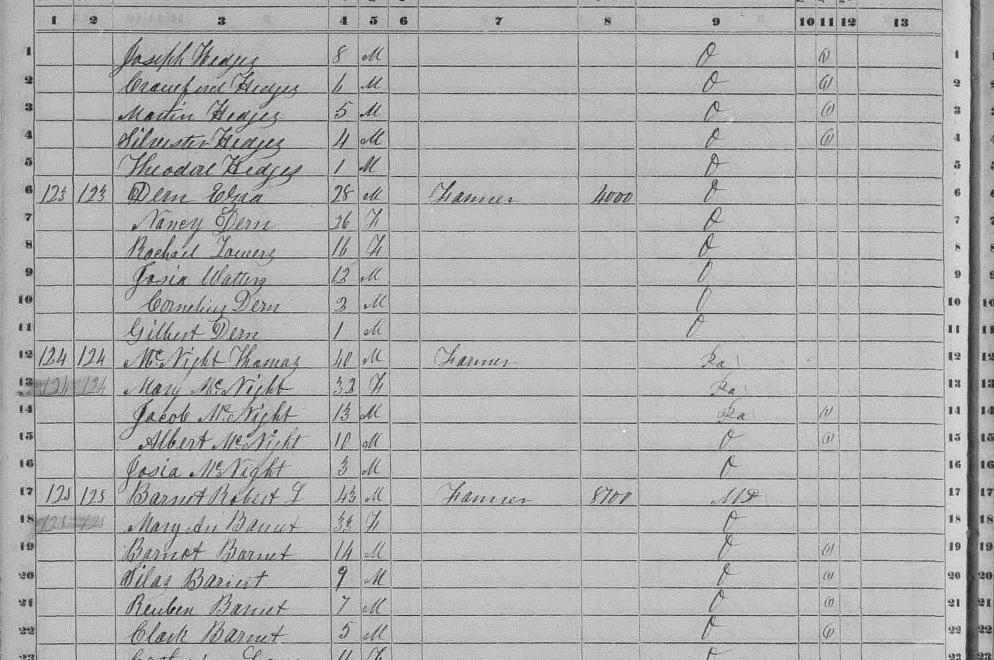 1 2 3 4 5 6 7 8 9 10 11 12 13
1 Joseph Hedges 8 M O 1 1
2 Crawford Hedges 6 M O 1 2
3 Martin Hedges 5 M O 1 3
4 Silvester Hedges 4 M O 1 4
5 Theodore Hedges 1 M O 5
6 123 123 Dern Ezra 28 M Farmer 4000 O 6
7 Nancy Dern 26 F O 7
8 Rachael Towers 16 F O 8
9 Josia Watters 12 M O 9
10 Cornelius Dern 2 M O 10
11 Gilbert Dern 1 M O 11
12 124 124 McNight Thomas 40 M Farmer Pa 12
13 124 124 Mary McNight 32 F Pa 13
14 Jacob McNight 13 M Pa 1 14
15 Albert McNight 10 M O 1 15
16 Josia McNight 3 M O 16
17 125 125 Barnet Robert L 43 M Farmer 8700 Md 17
18 125 125 Mary An Barnet 33 F O 18
19 Barnot Barnet 14 M O 1 19
20 Silas Barnet 9 M O 1 20
21 Reuben Barnet 7 M O 1 21
22 Clark Barnet 5 M O 1 22
23 4 F O 23